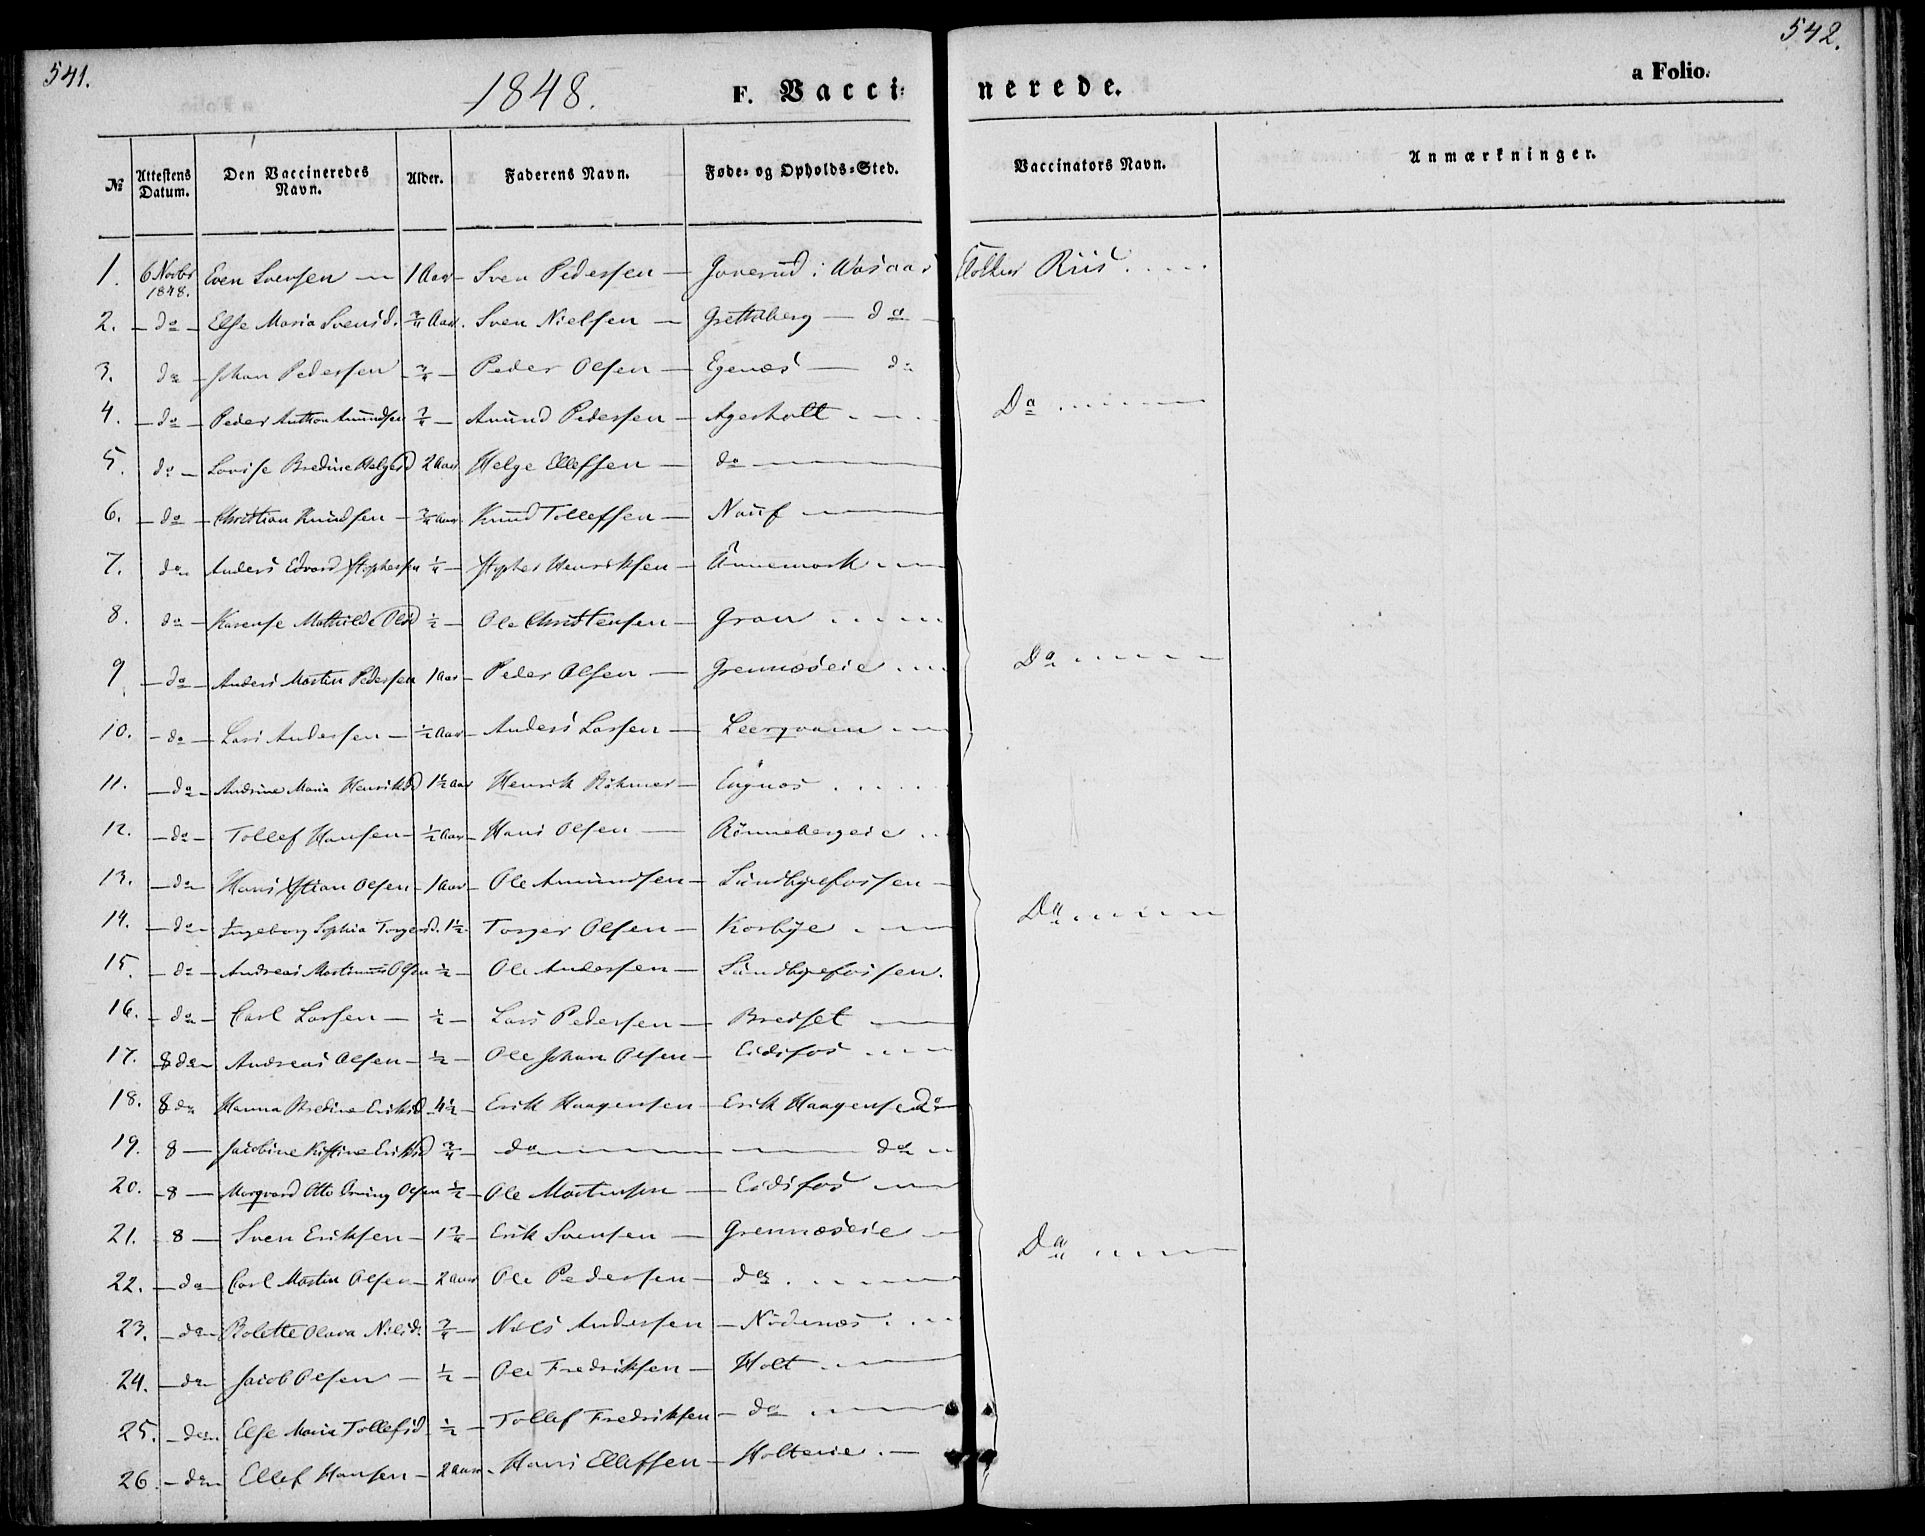 541.
542.
1848.
F. Vacci-
nerede.
a Folio.
№ Attestens Datum. Den Vaccineredes Navn. Alder. Faderens Navn. Føde- og Opholds-Sted. Vaccinators Navn. Anmærkninger.
1. 6 Novbr 1848. Even Svensen — 1 Aar — Sven Pedersen — i Riis
2. — do — Else Maria Svensd. ¾ Aar. Sven Nielsen — Gretteberg — do
3. do — Johan Pedersen ¾ — Peder Olsen — Egenæs — do
4. — do — Peder Anthon Amundsen ¾ — Amund Pedersen — Agerholt Do
5. do — Lovise Bredine Helgesd 2 Aar Helge Ellefsen — do
6. — do — Christian Knudsen — ¾ Aar. Knud Tollefsen —
7. do Anders Edvard Xstophersen ¼ — Xstopher Henriksen —
8. do — Karense Mathilde Olsd ½ — Ole Christensen — Gran
9. — do — Anders Martin Pedersen 1 Aar — Peder Olsen — Grennæseie Do
10. — do — Lars Andersen — ½ Aar — Anders Larsen — Leerqvam
11. — do — Andrine Maria Henriksd 1½ Aar Henrik Böhmer —
12. — do — Tollef Hansen — ½ Aar — Hans Olsen — Rönnebergeie
13. — do — Hans Xstian Olsen — 1 Aar — Ole Amundsen — Sundbyefossen —
14. — do — Ingeborg Sophia Torgersd. 1½ Torger Olsen — Korbye Do
15. — do — Andreas Martinus Olsen ½ — Ole Andersen — Sundbyefossen.
16. — do — Carl Larsen — ½ — Lars Pedersen — Bredset
17. 8 do Andreas Olsen — ½ — Ole Johan Olsen — Eidsfos
18. 8 do Hanna Bredine Eriksd 4½ — Erik Haagensen — Erik Haagensen do
19. 8 — Jacobine Kistine Eriksd ¾ — do — do
20. — 8 — Marqvard Otto Olsen ½ — Ole Mortensen — Eidsfos
21. 8 — Sven Eriksen — 1¾ — Erik Svensen — Grennæseie Do
22. — do — Carl Martin Olsen — 2 Aar Ole Pedersen — do
23. — do — Bolette Olava Nilsd. ¾ — Nils Andersen — Nödenæs
24. — do — Jacob Olsen — ½ — Ole Fredriksen — Holt
25. — do — Else Maria Tollefsd ½ — Tollef Fredriksen — do
26. — do — Ellef Hansen — 2 Aar — Hans Ellefsen — Holteeie